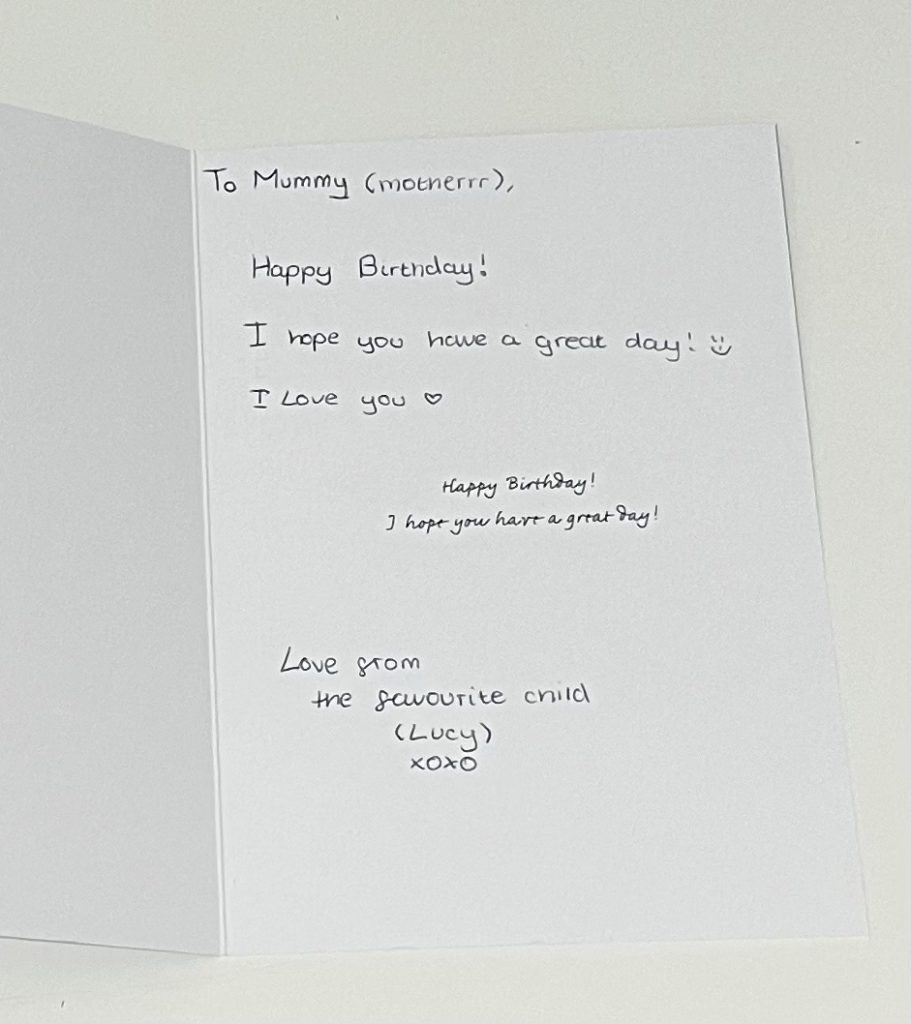 To Mummy (motherrr),
Happy Birthday!
I hope you have a great day! :)
I Love you ♡
Happy Birthday!
I hope you have a great day!
Love from
the favourite child
(Lucy)
xoxo